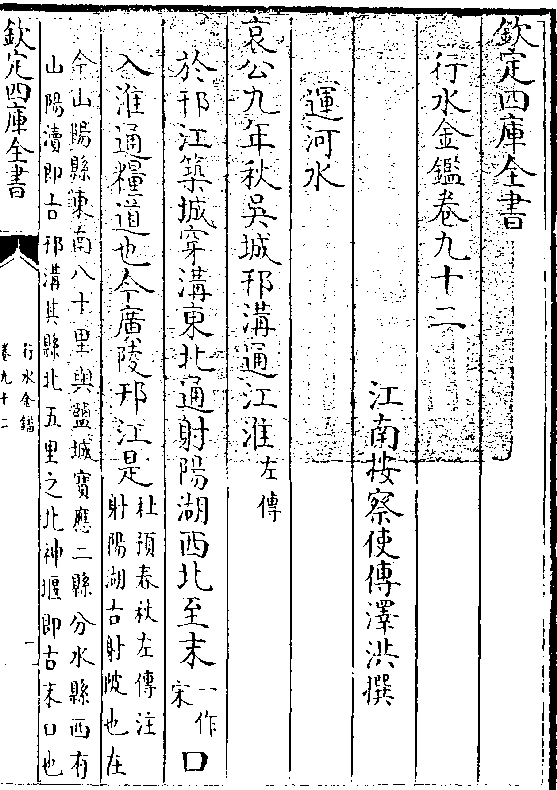 欽定四庫全書
行水金鑑卷九十二
江南按察使傅澤洪撰
運河水
哀公九年秋吳城邗溝通江淮左傳
於邗江築城穿溝東北通射陽湖西北至末一作宋口
入淮通糧道也今廣陵邗江是杜預春秋左傳注
射陽湖古射陂也在
今山陽縣東南八十里與鹽城寶應二縣分水縣西有
山陽瀆即古邗溝其縣北五里之北神堰即古末口也
欽定四庫全書
行水金鑑
卷九十二
一